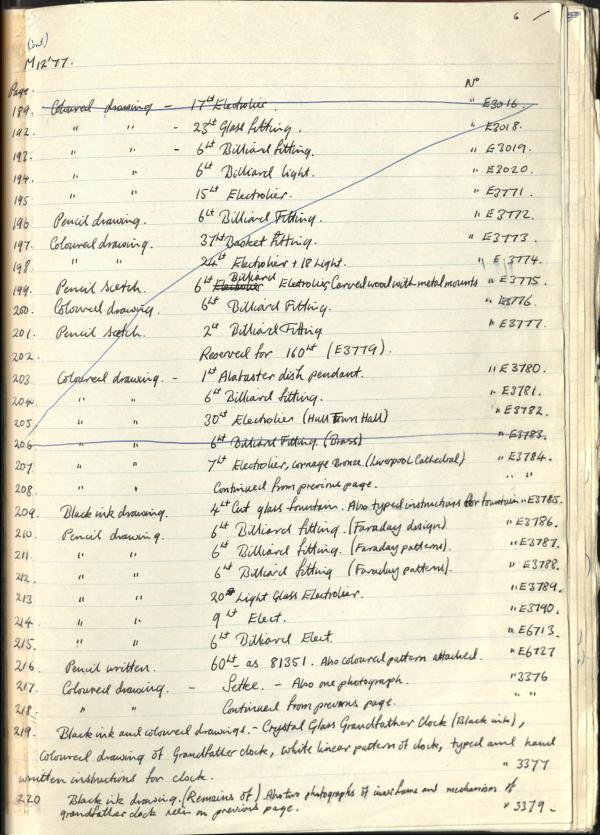 6 /
(Cont)
M12'77.
Page. No
189. Coloured drawing - 17 Lt Electrolier " E3016.
192. " " - 23 Lt Glass fitting. " E3018.
193. " " - 6 Lt Billiard fitting. " E3019.
194. " " 6 Lt Billiard light. " E3020.
195 " " 15 Lt Electrolier. " E3771.
196 Pencil drawing. 6 Lt Billiard Fitting. " E3772.
197. Coloured drawing. 37 Lt Basket fitting. " E3773.
198. " " 24 Lt Electrolier + 18 Light. " E3774.
199. Pencil Sketch. 6 Lt Electrolier Billiard Electrolier, Carved wood with metal mounts " E3775.
200. Coloured drawing. 6 Lt Billiard Fitting. " E3776.
201. Pencil sketch. 2 Lt Billiard Fitting " E3777.
202. Reserved for 160 Lt (E3779).
203. Coloured drawing - 1 Lt Alabaster dish pendant. " E3780.
204. " " 6 Lt Billiard fitting. " E3781.
205 " " 30 Lt Electrolier (Hull Town Hall) " E3782.
206 " " 6 Lt Billiard Fitting (Brass) " E3783.
207. " " 7 Lt Electrolier, Bronze. (Liverpool Cathedral) " E3784.
208. " " Continued from previous page. " "
209. Black ink drawing. 4 Lt Cut glass fountain. Also typed instructions for fountain " E3785.
210. Pencil drawing. 6 Lt Billiard fitting. (Faraday design) " E3786.
211. " " 6 Lt Billiard fitting. (Faraday patterns). " E3787.
212. " " 6 Lt Billiard fitting (Faraday patterns). " E3788.
213 " " 20 Light Glass Electrolier. " E3789.
214. " " 9 Lt Elect. " E3790.
215. " " 6 Lt Billiard Elect. " E6713.
216 Pencil written. 60 Lt - as 81351. Also coloured pattern attached. " E6727
217. Coloured drawing - Settee. - Also one photograph. " 3376
218. Continued from previous page. " "
219. Black ink and coloured drawings. - Crystal Glass Grandfather clock (Black ink),
coloured drawing of Grandfather clock, white linear pattern of clock, typed and hand
written instructions for clock. " 3377
220 Black ink drawing. (Remains of) Also two photographs of and mechanism of
grandfather clock seen on previous page. " 3379.